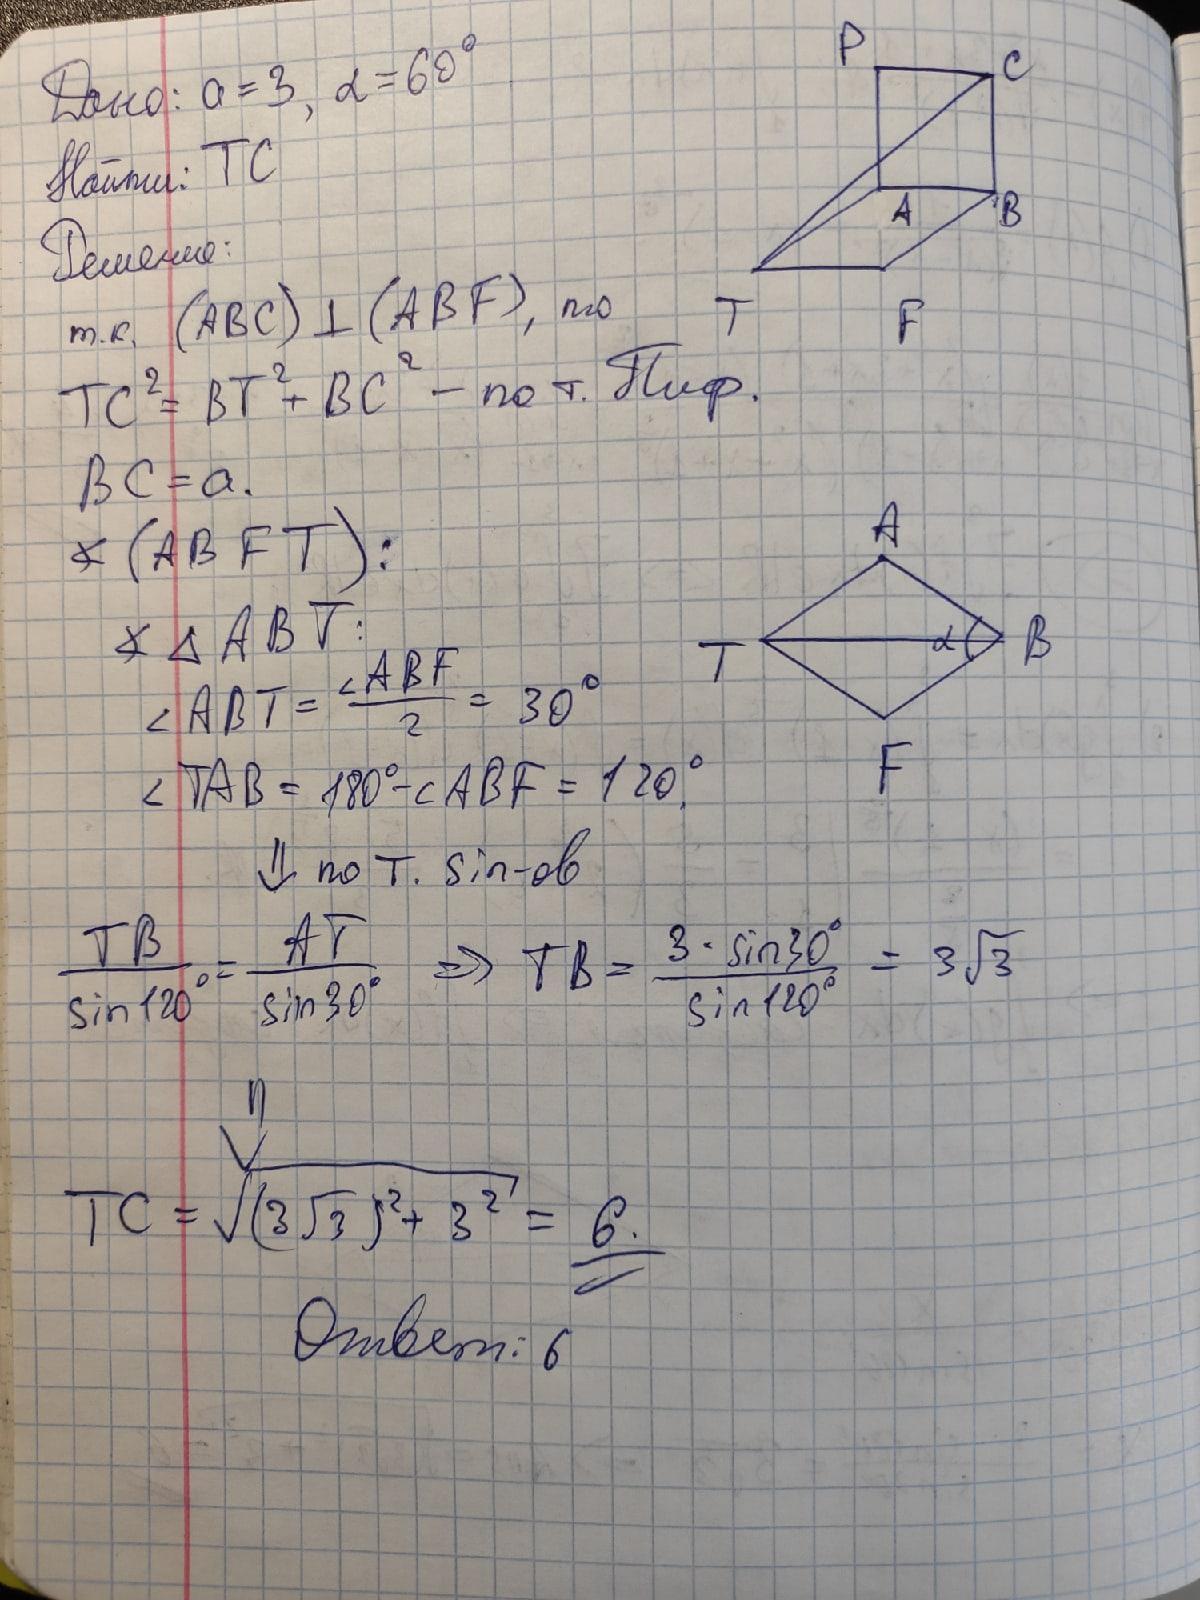 Дано: a = 3, α = 60°
Найти: TC
Решение:
т.к. (ABC) ⊥ (ABF), то
TC² = BT² + BC² – по т. Пиф.
BC = a.
∢ (ABFT):
∢ △ ABT:
∠ABT = ∠ABF / 2 = 30°
∠TAB = 180° - ∠ABF = 120°
⇓ по т. sin-ов
TB / sin120° = AT / sin30° => TB = 3 · sin30° / sin120° = 3√3
⇓
TC = √((3√3)² + 3²) = 6.
Ответ: 6
P C
A B
T F
A
T α B
F